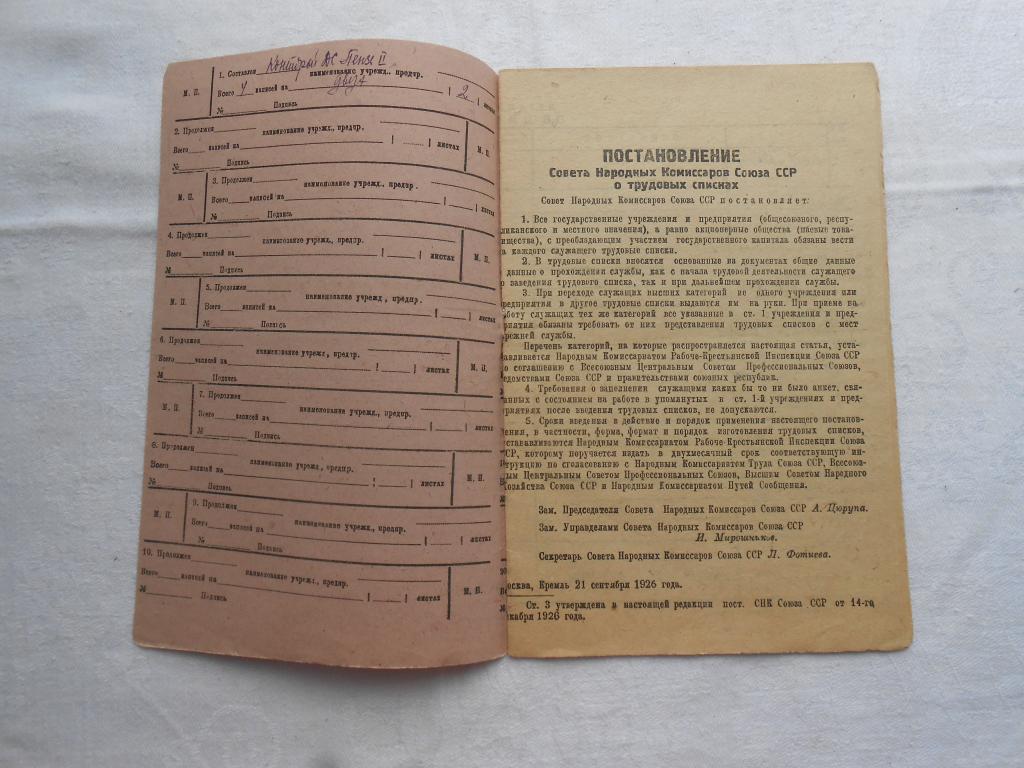 1. Составлен
наименование учрежд., предпр.
М. П.
Всего 4 записей на двух | 2 | листах
№ Подпись
2. Продолжен наименование учрежд., предпр.
Всего записей на | | листах М. П.
№ Подпись
3. Продолжен наименование учрежд., предпр.
М. П.
Всего записей на | | листах
№ Подпись
4. Продолжен наименование учрежд., предпр.
Всего записей на | | листах М. П.
№ Подпись
5. Продолжен наименование учрежд., предпр.
М. П.
Всего записей на | | листах
№ Подпись
6. Продолжен наименование учрежд., предпр.
Всего записей на | | листах М. П.
№ Подпись
7. Продолжен наименование учрежд., предпр.
М. П.
Всего записей на | | листах
№ Подпись
8. Продолжен наименование учрежд., предпр.
Всего записей на | | листах М. П.
№ Подпись
9. Продолжен наименование учрежд., предпр.
М. П.
Всего записей на | | листах
№ Подпись
10. Продолжен наименование учрежд., предпр.
Всего записей на | | листах М. П.
№ Подпись
ПОСТАНОВЛЕНИЕ
Совета Народных Комиссаров Союза ССР
о трудовых списках
Совет Народных Комиссаров Союза ССР постановляет:
1. Все государственные учреждения и предприятия (общесоюзного, респу-
ликанского и местного значения), а равно акционерные общества (паевые това-
ищества), с преобладающим участием государственного капитала обязаны вести
на каждого служащего трудовые списки.
2. В трудовые списки вносятся основанные на документах общие данные
данные о прохождении службы, как с начала трудовой деятельности служащего
о заведения трудового списка, так и при дальнейшем прохождении службы.
3. При переходе служащих высших категорий из одного учреждения или
редприятия в другое трудовые списки выдаются им на руки. При приеме на
боту служащих тех же категорий все указанные в ст. 1 учреждения и пред-
приятия обязаны требовать от них представления трудовых списков с мест
режней службы.
Перечень категорий, на которые распространяется настоящая статья, уста-
авливается Народным Комиссариатом Рабоче-Крестьянской Инспекции Союза ССР
по соглашению с Всесоюзным Центральным Советом Профессиональных Союзов,
едомствами Союза ССР и правительствами союзных республик.
4. Требования о заполнении служащими каких бы то ни было анкет, свя-
анных с состоянием на работе в упомянутых в ст. 1-й учреждениях и пред-
риятиях после введения трудовых списков, не допускаются.
5. Сроки введения в действие и порядок применения настоящего постанов-
ления, в частности, форма, формат и порядок изготовления трудовых списков,
устанавливаются Народным Комиссариатом Рабоче-Крестьянской Инспекции Союза
ССР, которому поручается издать в двухмесячный срок соответствующую ин-
струкцию по согласованию с Народным Комиссариатом Труда Союза ССР, Всесоюз-
ным Центральным Советом Профессиональных Союзов, Высшим Советом Народного
Хозяйства Союза ССР и Народным Комиссариатом Путей Сообщения.
Зам. Председателя Совета Народных Комиссаров Союза ССР А. Цюрупа.
Зам. Управделами Совета Народных Комиссаров Союза ССР
И. Мирошников.
Секретарь Совета Народных Комиссаров Союза ССР Л. Фотиева.
осква, Кремль 21 сентября 1926 года.
Ст. 3 утверждена в настоящей редакции пост. СНК Союза ССР от 14-го
екабря 1926 года.